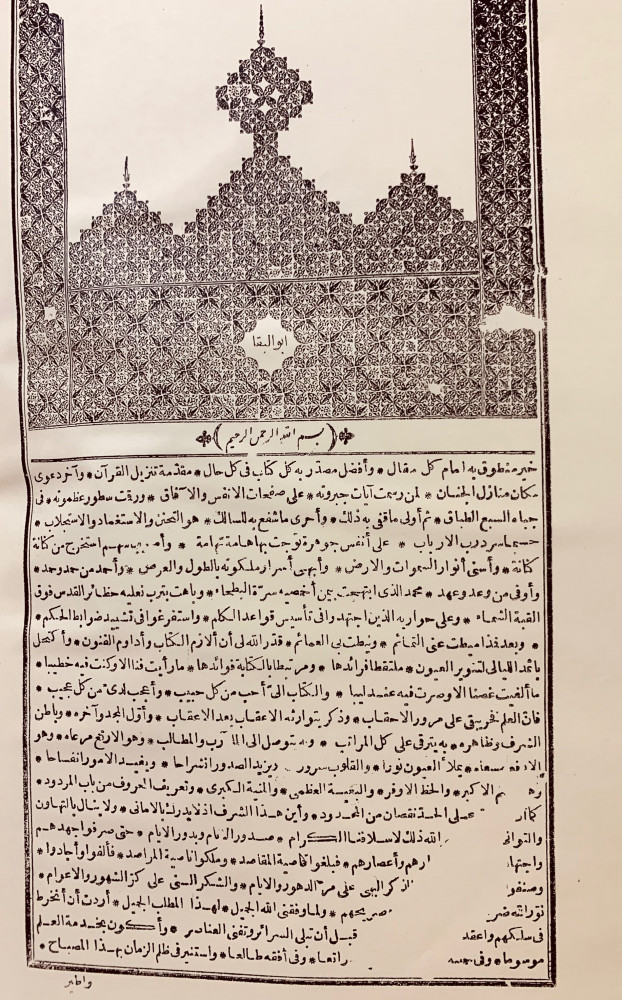 ابو البقا
بسم الله الرحمن الرحيم
خير منطوق به امام كل مقال * وأفضل مصدّر به كل كتاب فى كل حال * مقدّمة تنزيل القرآن * وآخر دعوى
سكان منازل الجنان * لمن رسمت آيات جبروته * على صفحات الانفس والآفاق * ورقت سطور عظموته * فى
جباه السبع الطباق * ثم أولى ماقفى به ذلك * وأحرى ماشفع به للسالك * هو التحنن والاستغماد والاستجلاب *
حسبما سر درب الارباب * على أنفس جوهرة توجت بها هامة تهامة * سهم استخرج من كنانة
كنانة * وأسنى أنوار السموات والارض * وأبهى أسرار ملكوته بالطول والعرض * وأحمد من حمد وحمد *
وأوفى من وعد وعهد * محمد الذى ابتهجت بيمن أخمصيه سرّة البطحاء * وباهت بترب نعليه حظائر القدس فوق
القبة الشماء * وعلى حواريه الذين اجتهدوا فى تأسيس قواعد الكلم * واستفرغوا فى تشييد ضوابط الحكم *
* وبعد فمذ ميطت عنى التمائم * ونيطت بى العمائم * قدّر الله لى أن ألازم الكتاب وأداوم الفنون * وأكتحل
باثمد الليالى لتنوير العيون * ملتقطا فرائدها * ومرتبطا بالكتابة فوائدها * مارأيت فننا الا وكنت فيه خطيبا *
ما ألفيت غصنا الا وصرت فيه عندليبا * والكتاب الىّ أحب من كل حبيب * وأعجب لدىّ من كل عجيب *
فان العلم فخر يبقى على مرور الاحقاب * وذكر يتوارثه الاعقاب بعد الاعقاب * وأول المجد وآخره * وباطن
الشرف وظاهره * به يترقى على كل المراتب * وبه يتوصل الى المآرب والمطالب * وهو الاربع مرعاه * وهو
الارفع مسعاه * يملأ العيون نورا * والقلوب سرورا يزيد الصدور انشراحا * ويفيد الامور انفساحا *
الاكبر * والحظ الاوفر * والبغية العظمى * والمنية الكبرى * وتعريف المعروف من باب المردود *
على الحدّ نقصان من المحدود * وأين هذا الشرف اذ لا يدرك بالامانى * ولا ينال بالتهاون
والتوانى الله ذلك لاسلافنا الكرام * صدور الانام وبدور الايام * حتى صرفوا جهدهم
واجتها أرهم وأعصارهم * فبلغوا قاصية المقاصد * وملكوا ناصية المراصد * فألفوا وأجادوا *
وصنفوا الذكر البهى على مرّ الدهور والايام * والشكر السنى على كرّ الشهور والاعوام *
نوّر الله ضريحهم * ولما وفقنى الله الجميل * لهذا المطلب الجميل * أردت أن أنخرط
فى سلكهم واعقد قبل أن تبلى السرائر وتفنى العناصر * وأكون بخدمة العلم
موسوما * وفى رائعا * وفى أفقه طالعا * واستنير فى ظلم الزمان بهذا المصباح *
واطير